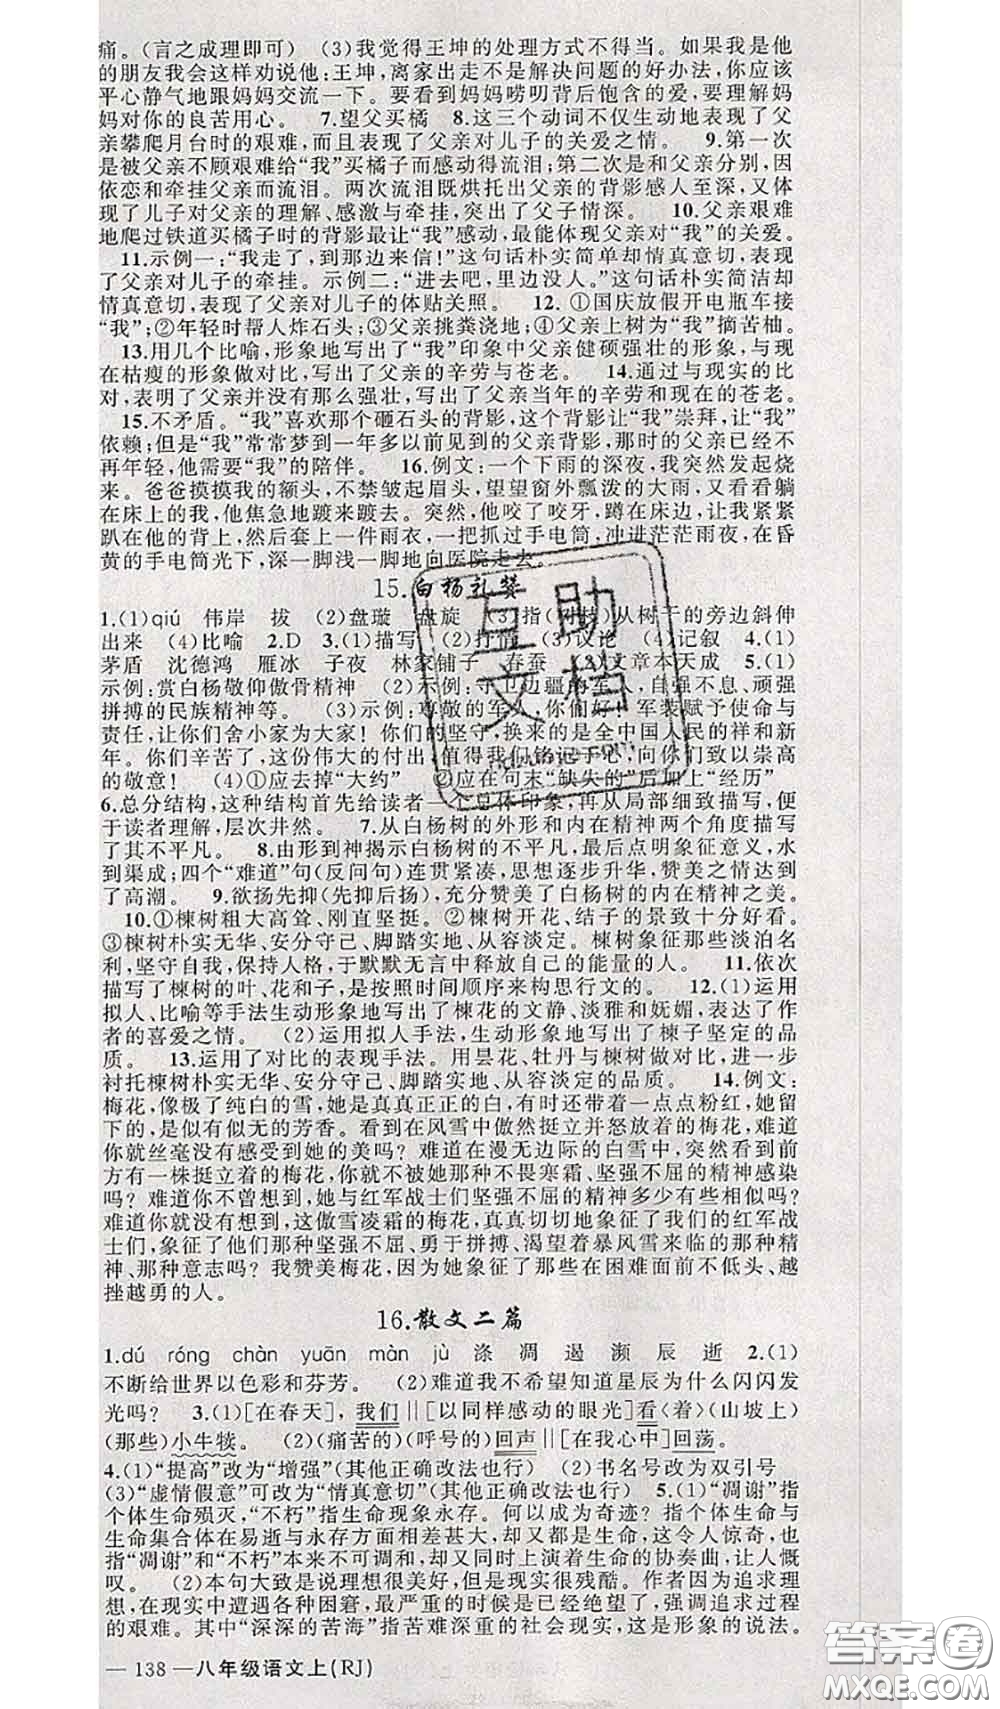 痛。(言之成理即可)　(3)我觉得王坤的处理方式不得当。如果我是他
的朋友我会这样劝说他:王坤,离家出走不是解决问题的好办法,你应该
平心静气地跟妈妈交流一下。要看到妈妈唠叨背后饱含的爱,要理解妈
妈对你的良苦用心。　7.望父买橘　8.这三个动词不仅生动地表现了父
亲攀爬月台时的艰难,而且表现了父亲对儿子的关爱之情。　9.第一次
是被父亲不顾艰难给“我”买橘子而感动得流泪;第二次是和父亲分别,因
依恋和牵挂父亲而流泪。两次流泪既烘托出父亲的背影感人至深,又体
现了儿子对父亲的理解、感激与牵挂,突出了父子情深。　10.父亲艰难
地爬过铁道买橘子时的背影最让“我”感动,最能体现父亲对“我”的关爱。
11.示例一:“我走了,到那边来信!”这句话朴实简单却情真意切,表现
了父亲对儿子的牵挂。示例二:“进去吧,里边没人。”这句话朴实简洁却
情真意切,表现了父亲对儿子的体贴关照。　12.①国庆放假开电瓶车接
“我”;②年轻时帮人炸石头;③父亲挑粪浇地;④父亲上树为“我”摘苦柚。
13.用几个比喻,形象地写出了“我”印象中父亲健硕强壮的形象,与现
在枯瘦的形象做对比,写出了父亲的辛劳与苍老。　14.通过与现实的比
对,表明了父亲并没有那么强壮,写出了父亲当年的辛劳和现在的苍老。
15.不矛盾。“我”喜欢那个砸石头的背影,这个背影让“我”崇拜,让“我”
依赖;但是“我”常常梦到一年多以前见到的父亲背影,那时的父亲已经不
再年轻,他需要“我”的陪伴。　16.例文:一个下雨的深夜,我突然发起烧
来。爸爸摸摸我的额头,不禁皱起眉头,望望窗外瓢泼的大雨,又看看躺
在床上的我,他焦急地踱来踱去。突然,他咬了咬牙,蹲在床边,让我紧紧
趴在他的背上,然后套上一件雨衣,一把抓过手电筒,冲进茫茫雨夜,在昏
黄的手电筒光下,深一脚浅一脚地向医院走去。
15.白杨礼赞
1.(1)qiú　伟岸　拔　(2)盘璇　盘旋　(3)指(树枝)从树干的旁边斜伸
出来　(4)比喻　2.D　3.(1)描写　(2)抒情　(3)议论　(4)记叙　4.(1)
茅盾　沈德鸿　雁冰　子夜　林家铺子　春蚕　(2)文章本天成　5.(1)
示例:赏白杨敬仰傲骨精神　(2)示例:守卫边疆的军人,自强不息、顽强
拼搏的民族精神等。　(3)示例:尊敬的军人,你们好!军装赋予使命与
责任,让你们舍小家为大家!你们的坚守,换来的是全中国人民的祥和新
年。你们辛苦了,这份伟大的付出,值得我们铭记于心,向你们致以崇高
的敬意!　(4)①应去掉“大约”　②应在句末“缺失的”后加上“经历”
6.总分结构,这种结构首先给读者一个总体印象,再从局部细致描写,便
于读者理解,层次井然。　7.从白杨树的外形和内在精神两个角度描写
了其不平凡。　8.由形到神揭示白杨树的不平凡,最后点明象征意义,水
到渠成;四个“难道”句(反问句)连贯紧凑,思想逐步升华,赞美之情达到
了高潮。　9.欲扬先抑(先抑后扬),充分赞美了白杨树的内在精神之美。
10.①楝树粗大高耸、刚直坚挺。②楝树开花、结子的景致十分好看。
③楝树朴实无华、安分守己、脚踏实地、从容淡定。楝树象征那些淡泊名
利,坚守自我,保持人格,于默默无言中释放自己的能量的人。　11.依次
描写了楝树的叶、花和子,是按照时间顺序来构思行文的。　12.(1)运用
拟人、比喻等手法生动形象地写出了楝花的文静、淡雅和妩媚,表达了作
者的喜爱之情。　(2)运用拟人手法,生动形象地写出了楝子坚定的品
质。　13.运用了对比的表现手法。用昙花、牡丹与楝树做对比,进一步
衬托楝树朴实无华、安分守己、脚踏实地、从容淡定的品质。　14.例文:
梅花,像极了纯白的雪,她是真真正正的白,有时还带着一点点粉红,她留
下的,是似有似无的芳香。看到在风雪中傲然挺立并怒放着的梅花,难道
你就丝毫没有感受到她的美吗?难道在漫无边际的白雪中,突然看到前
方有一株挺立着的梅花,你就不被她那种不畏寒霜、坚强不屈的精神感染
吗?难道你不曾想到,她与红军战士们坚强不屈的精神多少有些相似吗?
难道你就没有想到,这傲雪凌霜的梅花,真真切切地象征了我们的红军战
士们,象征了他们那种坚强不屈、勇于拼搏、渴望着暴风雪来临的那种精
神、那种意志吗?我赞美梅花,因为她象征了那些在困难面前不低头、越
挫越勇的人。
16.散文二篇
1.dú　róng　chàn　yuān　màn　jù　涤　凋　遏　濒　辰　逝　2.(1)
不断给世界以色彩和芬芳。　(2)难道我不希望知道星辰为什么闪闪发
光吗?　3.(1)[在春天],我们‖[以同样感动的眼光]看〈着〉(山坡上)
(那些)小牛犊。　(2)(痛苦的)(呼号的)回声‖[在我心中]回荡。
4.(1)“提高”改为“增强”(其他正确改法也行)　(2)书名号改为双引号
(3)“虚情假意”可改为“情真意切”(其他正确改法也行)　5.(1)“凋谢”指
个体生命殒灭,“不朽”指生命现象永存。何以成为奇迹?指个体生命与
生命集合体在易逝与永存方面相差甚大,却又都是生命,这令人惊奇,也
指“凋谢”和“不朽”本来不可调和,却又同时上演着生命的协奏曲,让人慨
叹。　(2)本句大致是说理想很美好,但是现实很残酷。作者因为追求理
想,在现实中遭遇各种困窘,最严重的时候是已经绝望了,强调追求过程
的艰难。其中“深深的苦海”指苦难深重的社会现实,这是形象的说法。
— 138 —八年级语文上(RJ)
互助
文档
答案卷
MXQE.COM